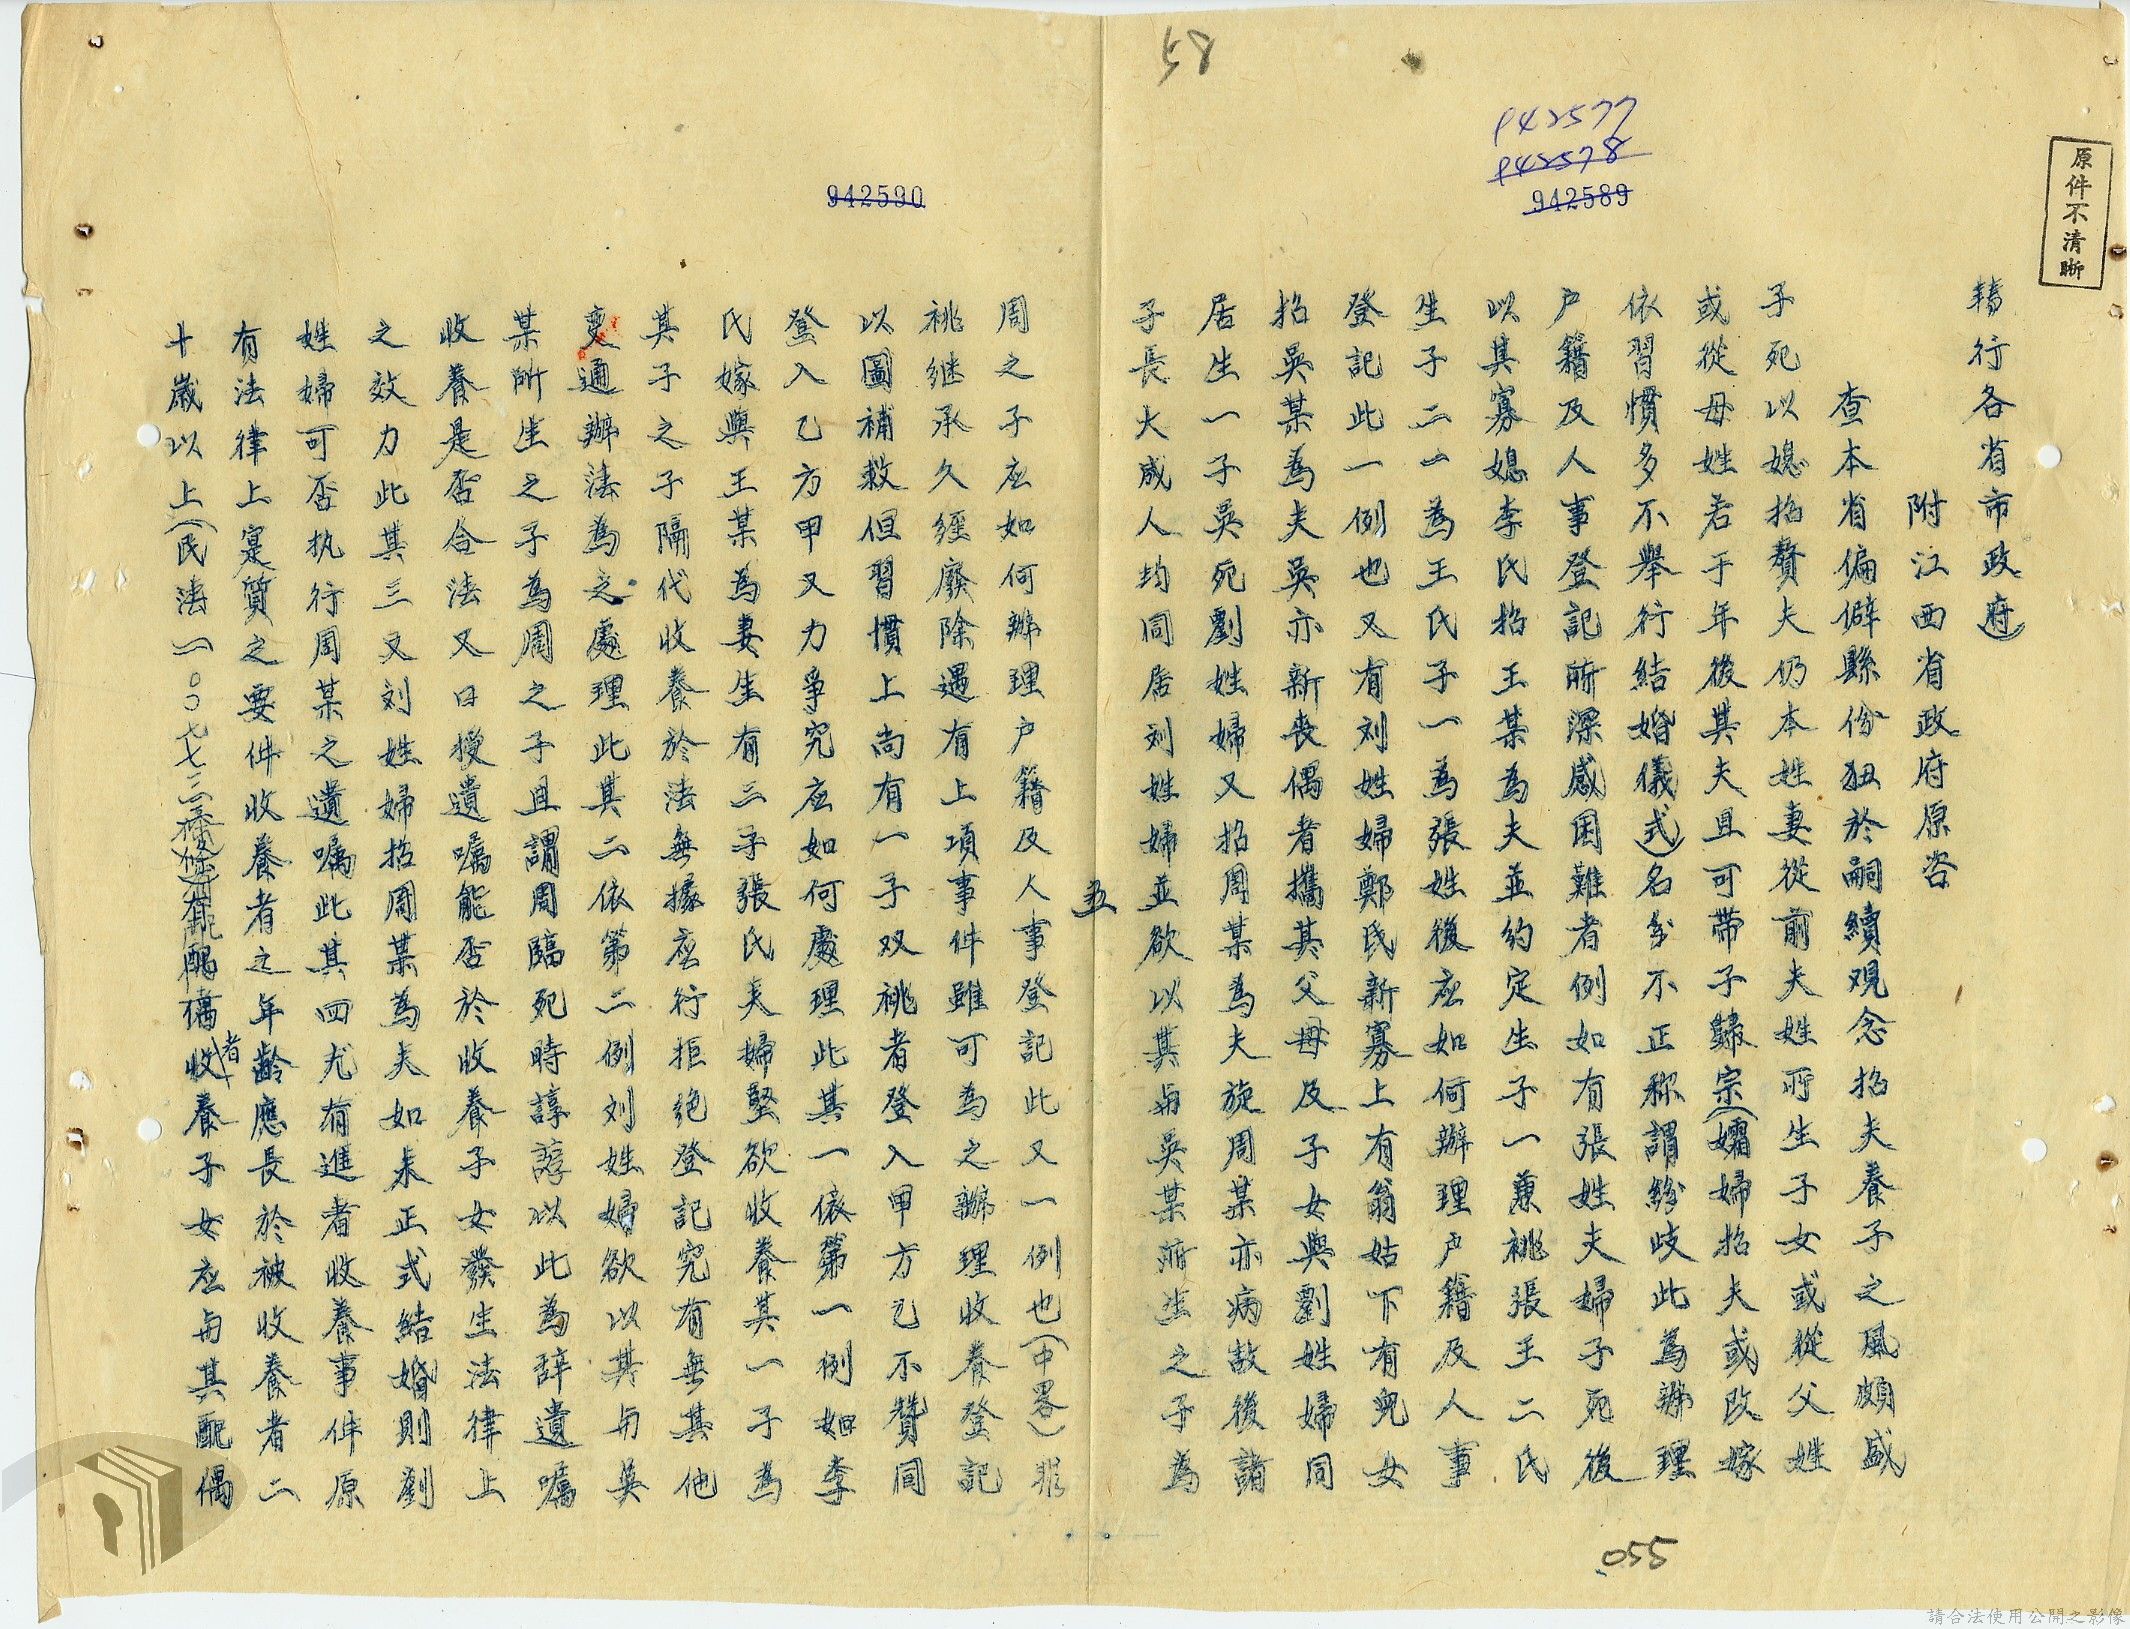 58
P42577
P42578
942589
942590
原件不清晰
轉行各省市政府）
附江西省政府原咨
查本省偏僻縣份狃於嗣續观念招夫養子之風頗盛
子死以媳招贅夫仍本姓妻從前夫姓所生子女或從父姓
或從母姓若干年後其夫且可帶子歸宗（孀婦招夫或改嫁
依習慣多不舉行結婚儀式）名分不正称謂紛歧此為辦理
户籍及人事登記所深感困難者例如有張姓夫婦子死後
以其寡媳李氏招王某為夫並約定生子一兼祧張王二氏
生子二一為王氏子一為張姓後应如何辦理户籍及人事
登記此一例也又有刘姓婦鄭氏新寡上有翁姑下有兒女
招吳某為夫吳亦新喪偶者攜其父母及子女與劉姓婦同
居生一子吳死劉姓婦又招周某為夫旋周某亦病故後諸
子長大成人均同居刘姓婦並欲以其与吳某所生之子為
五
周之子应如何辦理户籍及人事登記此又一例也（中畧）非
祧继承久經廢除遇有上項事件雖可為之辦理收養登記
以圖補救但習慣上尚有一子双祧者登入甲方乙不贊同
登入乙方甲又力爭究应如何處理此其一依第一例如李
氏嫁與王某為妻生有三子張氏夫婦堅欲收養其一子為
其子之子隔代收養於法無據应行拒绝登記究有無其他
变通辦法為之處理此其二依第二例刘姓婦欲以其与吳
某所生之子為周之子且謂周臨死時諄諄以此為辞遺嘱
收養是否合法又口授遺嘱能否於收養子女發生法律上
之效力此其三又刘姓婦招周某為夫如未正式結婚則劉
姓婦可否执行周某之遺嘱此其四尤有進者收養事件原
有法律上寔質之要件收養者之年齡應長於被收養者二
十歲以上（民法一〇七三條）有配偶者收養子女应与其配偶
055
請合法使用公開之影像